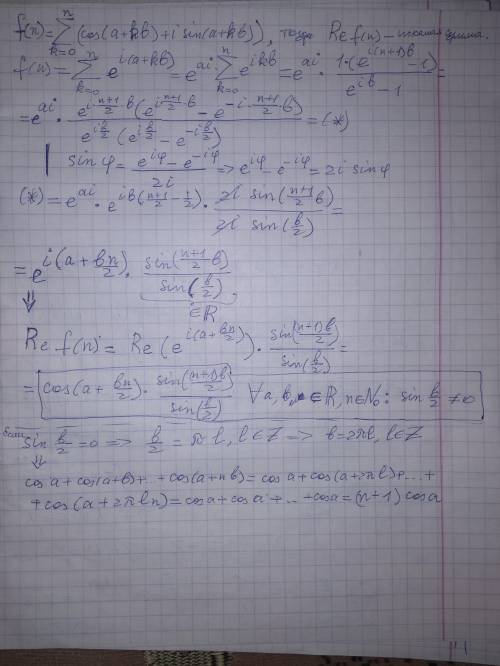 f(n)=∑_{k=0}^{n} (cos(a+kb)+i sin(a+kb)), тогда Re f(n) – искомая сумма.
f(n)=∑_{k=0}^{n} e^{i(a+kb)} = e^{ai} ∑_{k=0}^{n} e^{ikb} = e^{ai} · \frac{1·(e^{i(n+1)b}-1)}{e^{ib}-1} =
= e^{ai} · \frac{e^{i·\frac{n+1}{2}·b}(e^{i\frac{n+1}{2}·b} - e^{-i·\frac{n+1}{2}·b})}{e^{i\frac{b}{2}}(e^{i\frac{b}{2}} - e^{-i\frac{b}{2}})} = (*)
sin φ = \frac{e^{iφ} - e^{-iφ}}{2i} => e^{iφ} - e^{-iφ} = 2i sin φ
(*) = e^{ai} · e^{ib(\frac{n+1}{2} - \frac{1}{2})} · \frac{2i sin(\frac{n+1}{2}b)}{2i sin(\frac{b}{2})} =
= e^{i(a+\frac{bn}{2})} · \frac{sin(\frac{n+1}{2}·b)}{sin(\frac{b}{2})}
∈ℝ
⇓
Re f(n) = Re(e^{i(a+\frac{bn}{2})}) · \frac{sin(\frac{(n+1)b}{2})}{sin(\frac{b}{2})} =
= cos(a+\frac{bn}{2}) · \frac{sin(\frac{(n+1)b}{2})}{sin(\frac{b}{2})} ∀a, b ∈ℝ, n∈ℕ₀: sin \frac{b}{2} ≠ 0
Если sin \frac{b}{2} = 0 => \frac{b}{2} = πl, l∈ℤ => b=2πl, l∈ℤ
⇓
cos a + cos(a+b)+..+cos(a+nb) = cos a + cos(a+2πl)+...+
+cos(a+2πln) = cos a + cos a + ... + cos a = (n+1) cos a